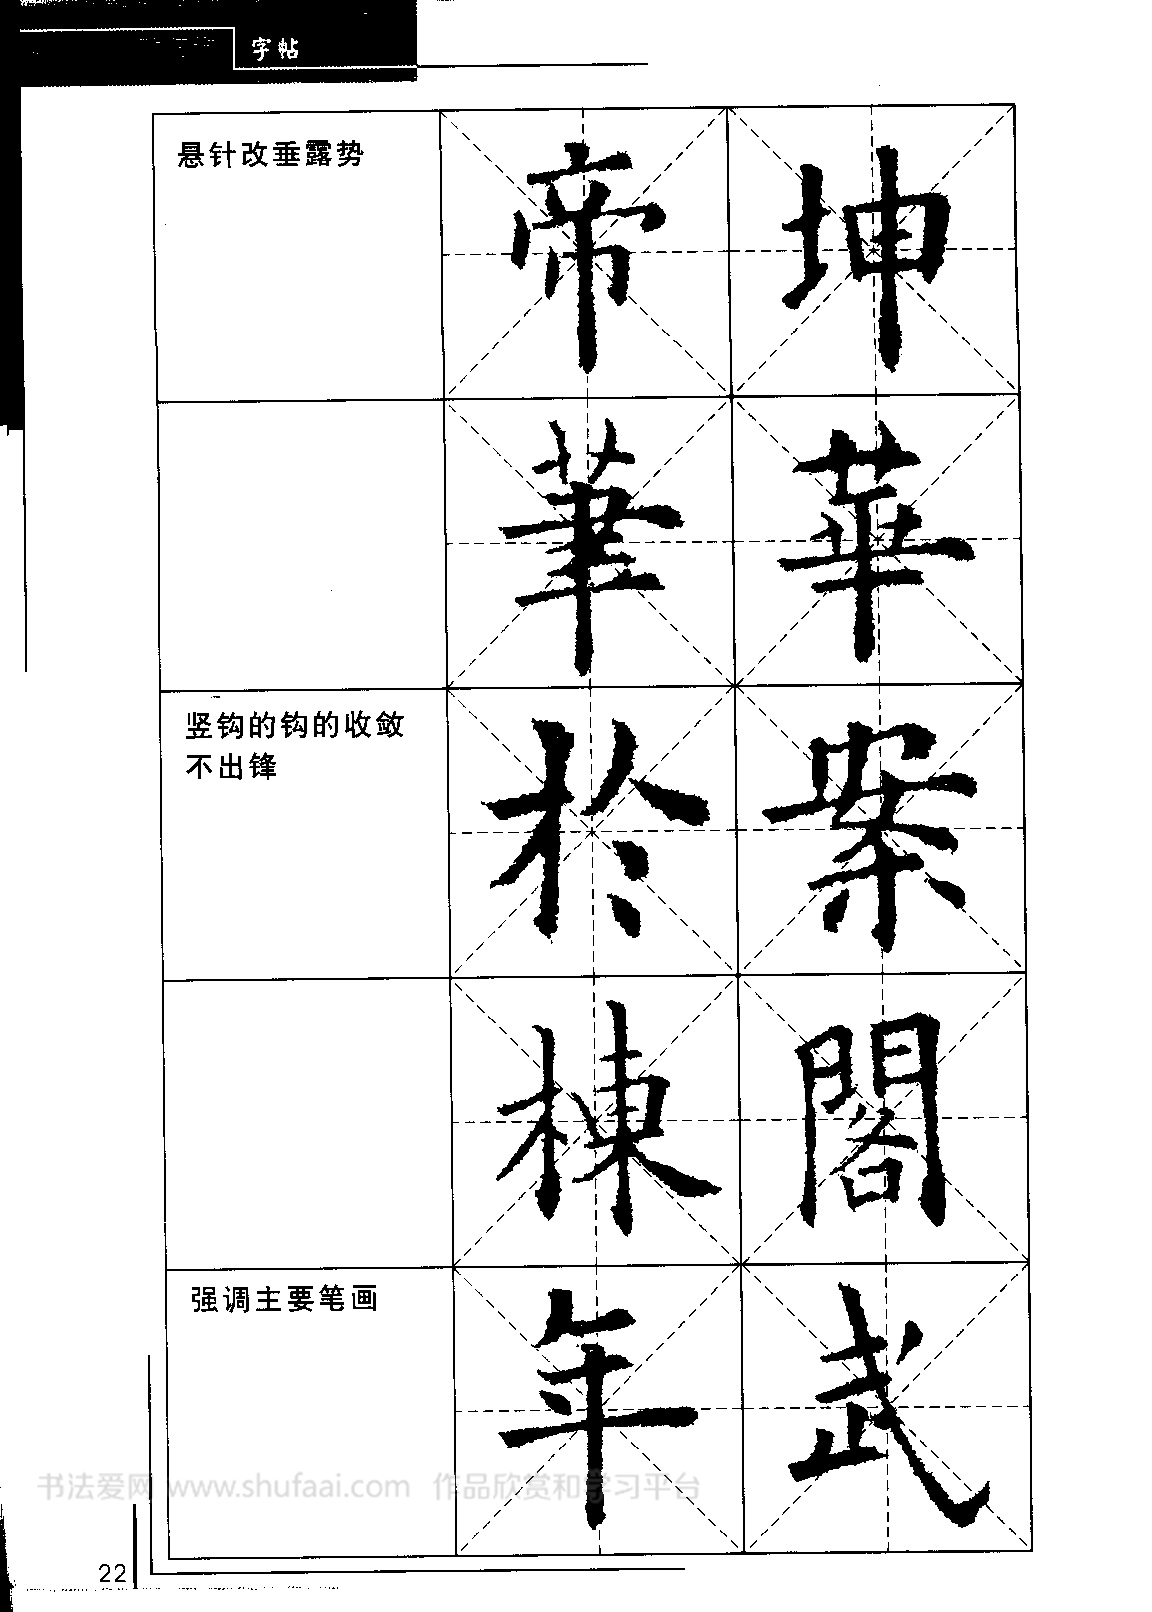 字帖
悬针改垂露势
帝 坤
華 華
竖钩的钩的收敛
不出锋
於 案
棟 閣
强调主要笔画
年 武
书法爱网 www.shufaai.com 作品欣赏和学习平台
22